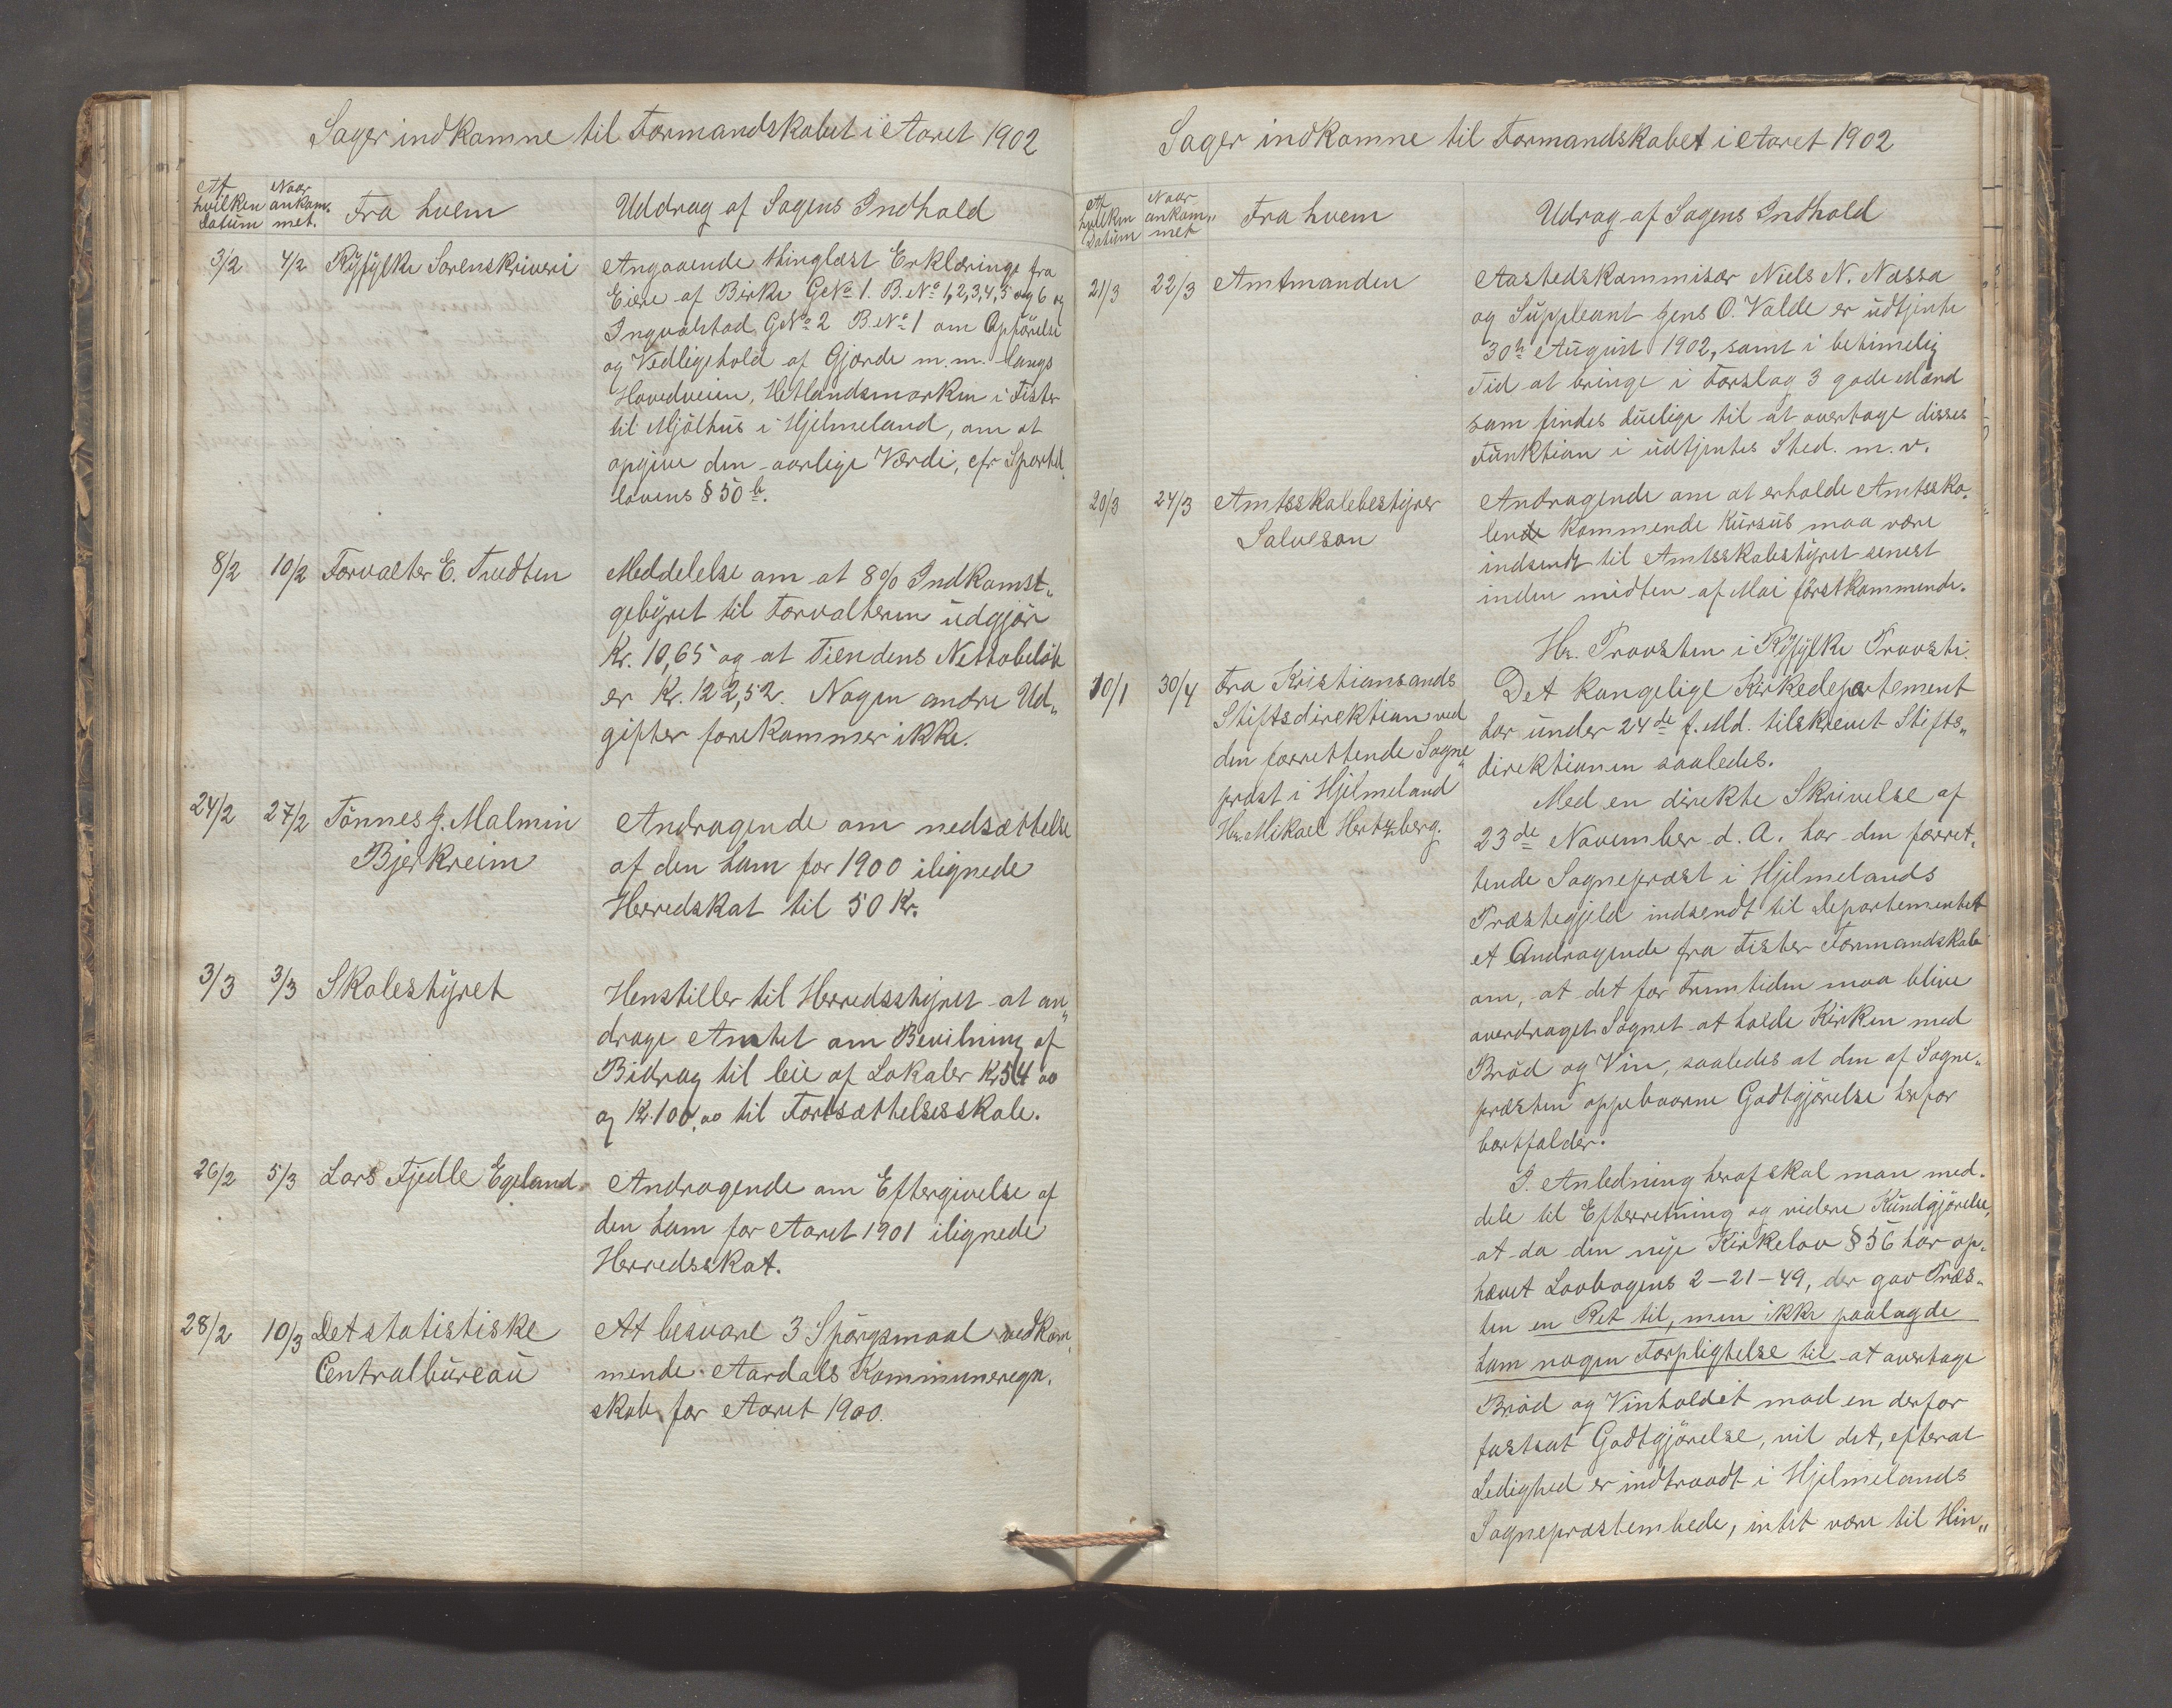 Sager indkomne til Formandskabet i Aaret 1902
Af hvilken Datum
Naar ankom- met.
Fra hvem
Uddrag af Sagens Indhold
3/2 4/2 Ryfylke Sorenskriveri
Angaaende thinglæst Erklæringe fra
Eiere af Birke G.No 1. B.No 1,2,3,4,5 og 6 og
Ingvalstad G.No 2 B.No 1 om Opførelse
og Vedligehold af Gjærde m.m. langs
Hovedveien, Hetlandsmarken i Fister
til Mjølhus i Hjelmeland, om at
opgive den aarlige Værdi, cfr Sportel
lovens § 50 b.
8/2 10/2 Forvalter E. Tvedten
Meddelelse om at 8% Indkomst-
gebyret til Forvalteren udgjør
Kr. 10,65 og at Tiendens Nettobeløb
er Kr. 122,52. Nogen andre Ud-
gifter forekommer ikke.
24/2 27/2 Tønnes J. Malmin
Bjerkreim
Andragende om nedsættelse
af den ham for 1900 ilignede
Herredskat til 50 Kr.
3/3 3/3 Skolestyret
Henstiller til Herredsstyret at an-
drage Amtet om Bevilning af
Bidrag til leie af Lokaler Kr 54 00
og Kr. 100,00 til Fortsættelsesskole.
26/2 5/3 Lars Fjedle Egeland
Andragende om Eftergivelse af
den ham for Aaret 1901 ilignede
Herredsskat.
28/2 10/3 Det statistiske
Centralbureau
At besvare 3 Spørgsmaal vedkom-
mende Aardals Kommuneregn-
skab for Aaret 1900.
Sager indkomne til Formandskabet i Aaret 1902
Af hvilken Datum
Naar ankom- met
Fra hvem
Udrag af Sagens Indhold
21/3 22/3 Amtmanden
Aastedskommisær Niels N. Nassa
og Suppleant Jens O. Valde er udtjente
30te August 1902, samt i betimelig
Tid at bringe i Forslag 3 gode Mænd
som findes duelige til at overtage disses
Funktion i udtjentes Sted. m. v.
20/3 24/3 Amtsskolebestyrer
Salveson
Andragende om at erholde Amtssko-
lende kommende Kursus maa være
indsendt til Amtsskolestyret senest
inden midten af Mai førstkommende.
10/1 30/4 Fra Kristiansands
Stiftsdirektion ved
den forrettende Sogne-
præst i Hjelmeland
Hr. Mikael Hertzberg.
Hr. Provsten i Ryfylke Provsti.
Det kongelige Kirkedepartement
har under 24de f. Md. tilskrevet Stifts-
direktionen saaledes.
Med en direkte Skrivelse af
23de November d. A. har den forret-
tende Sognepræst i Hjelmelands
Præstegjeld indsendt til Departementet
et Andragende fra Fister Formandskab
om, at det for Fremtiden maa blive
overdraget Sognet at holde Kirken med
Brød og Vin, saaledes at den af Sogne-
præsten oppebaarne Godtgjørelse herfor
bortfalder.
I Anledning heraf skal man med-
dele til Efterretning og videre Kundgjørelse,
at da den nye Kirkelov § 56 har op-
hævet Lovbogens 2-21-49, der gav Præs-
ten en Ret til, men ikke paalagde
ham nogen Forpligtelse til at overtage
Brød og Vinholdet mod en derfor
fastsat Godtgjørelse, vil det, efterat
Ledighed er indtraadt i Hjelmelands
Sognepræstembede, intet være til Hin-